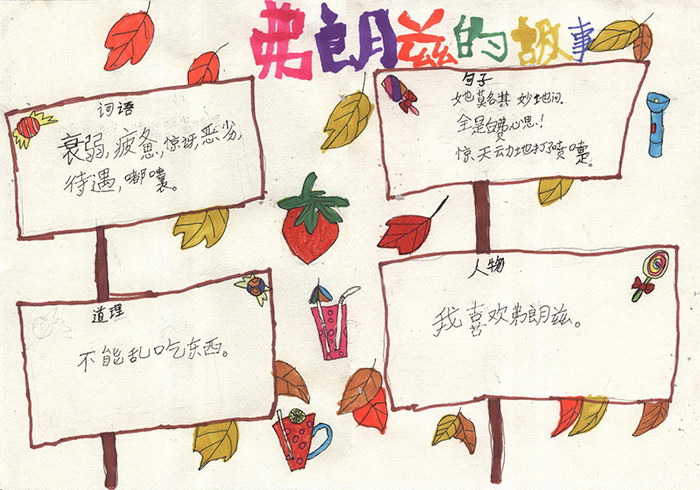 弗朗兹的故事
词语
衰弱,疲惫,惊讶,恶劣,
待遇,嘟囔。
句子
她莫名其妙地问。
全是白费心思!
惊天动地打了喷嚏。
道理
不能乱吃东西。
人物
我喜欢弗朗兹。